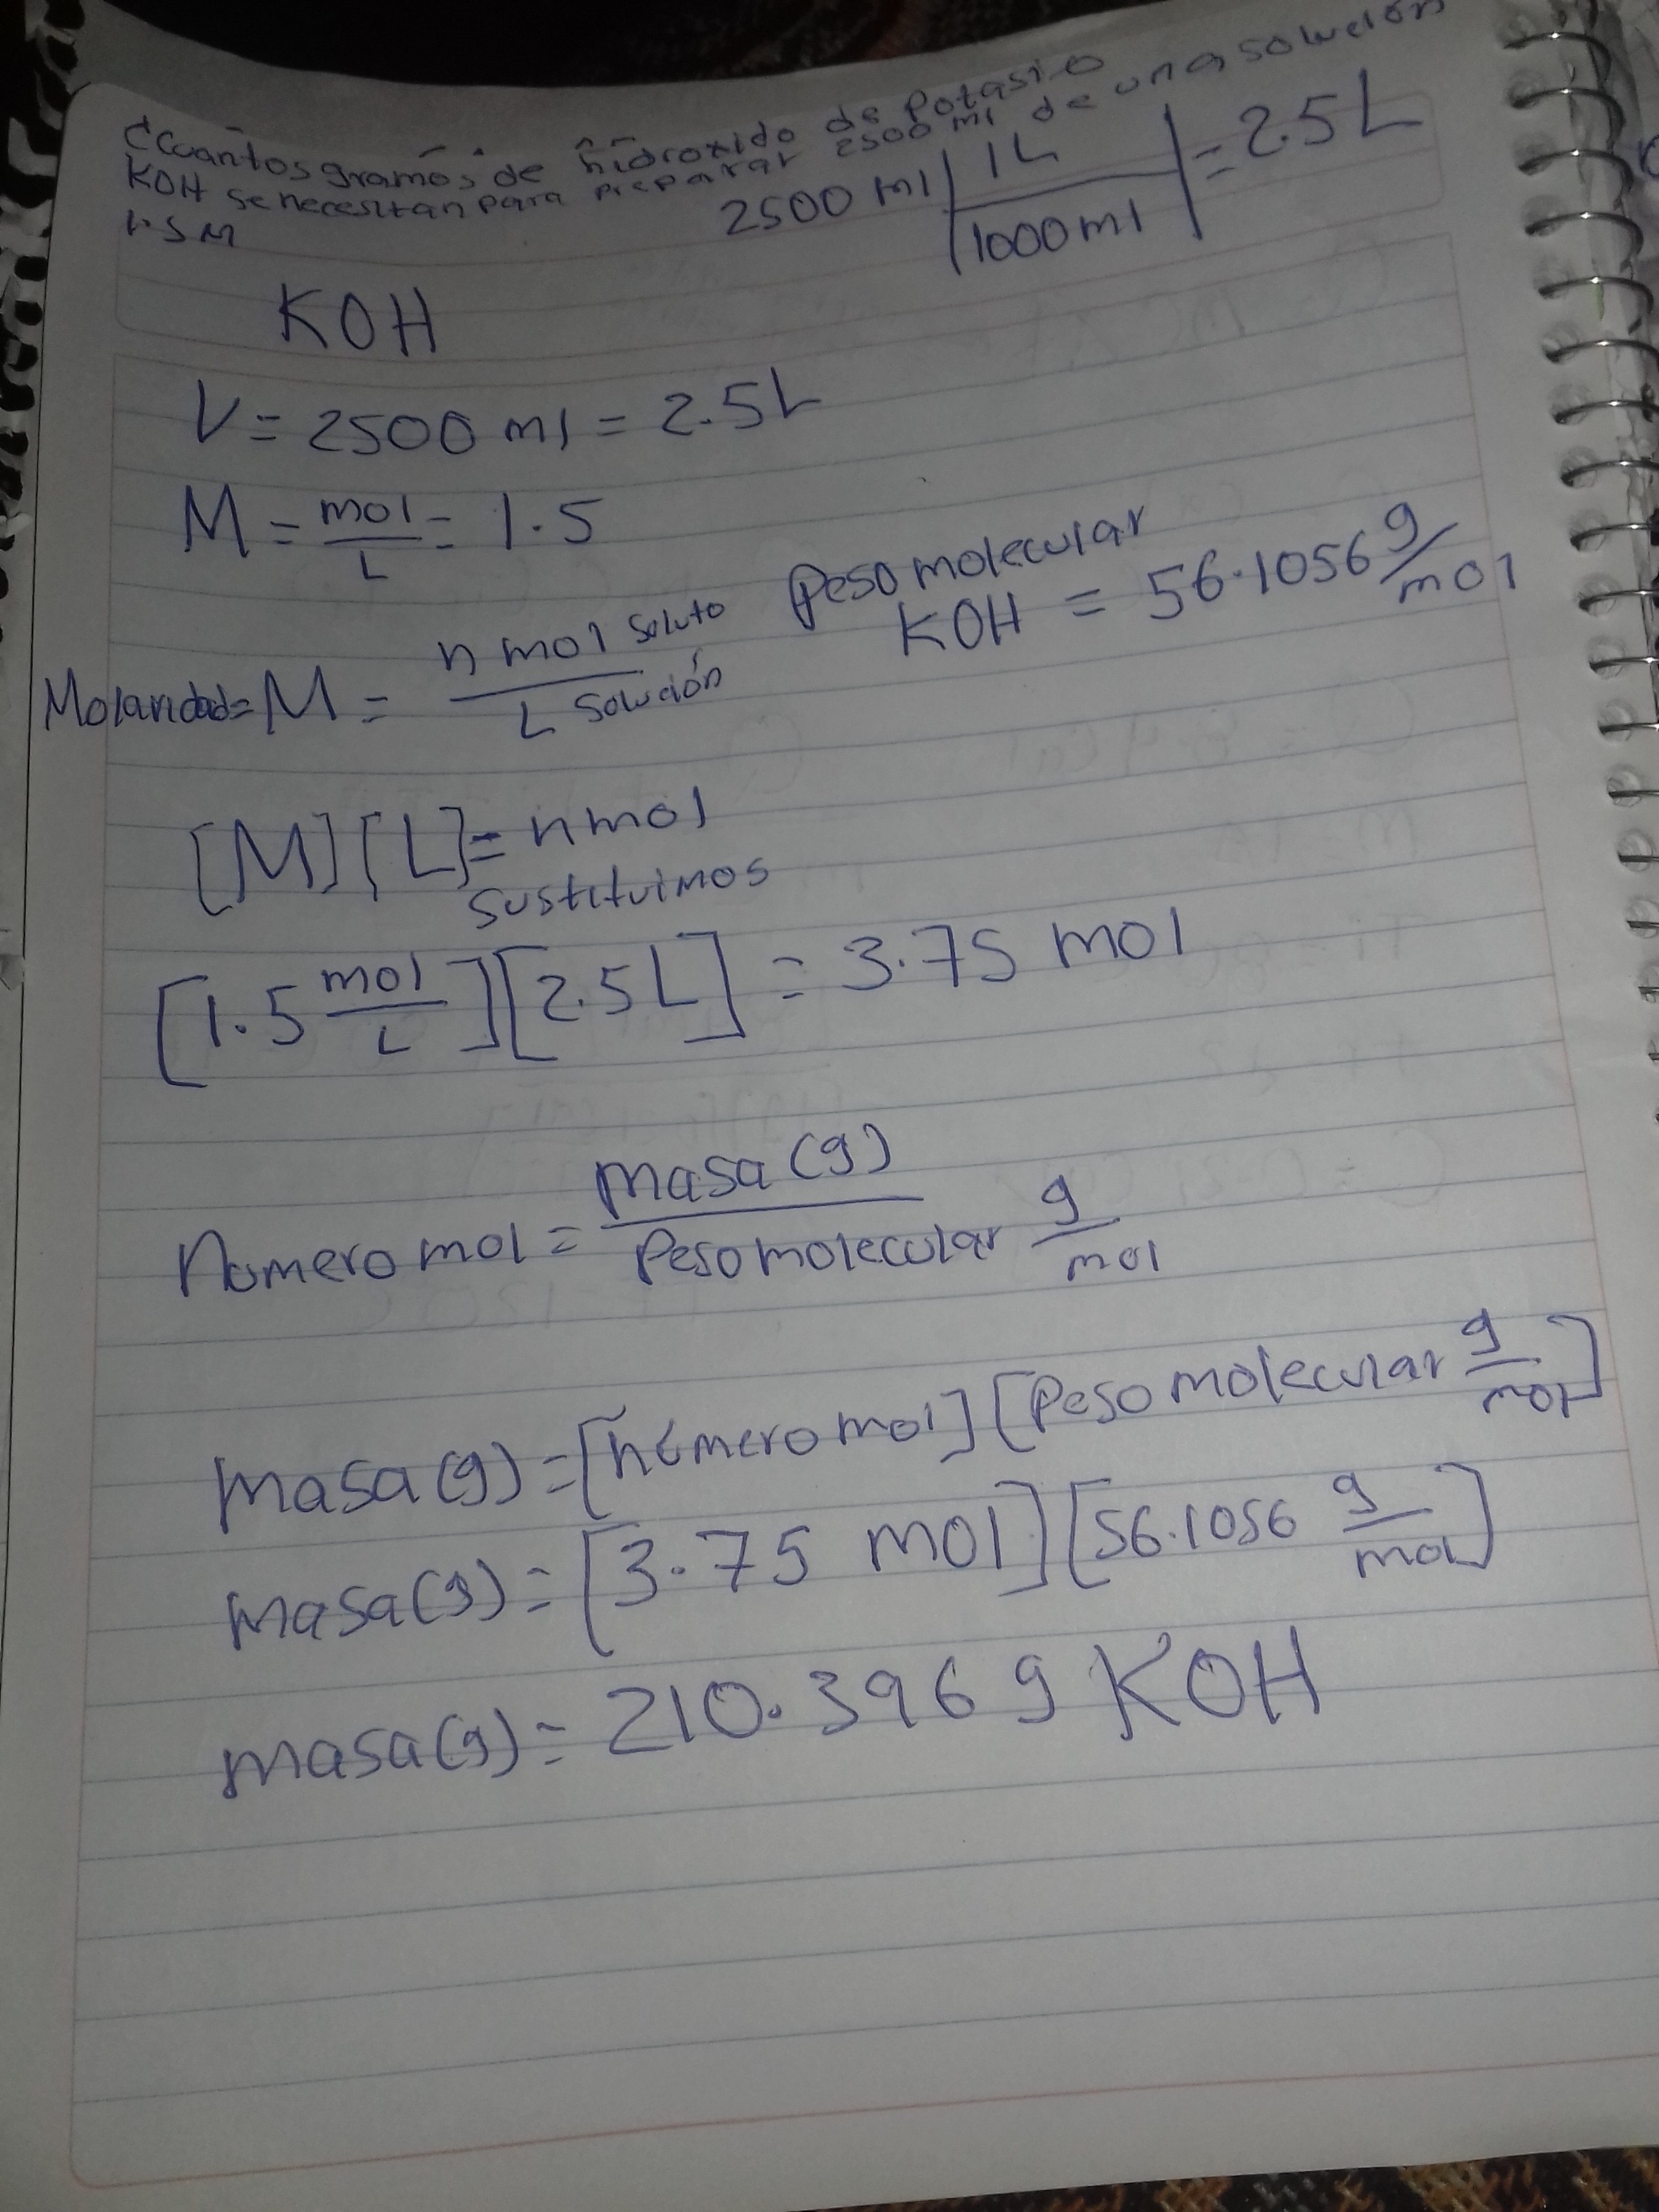 ¿Cuántos gramos de hidroxido de Potasio
KOH se necesitan para preparar 2500 ml de una solución
1.5 M
2500 ml | 1 L = 2.5 L
1000 ml
KOH
V = 2500 ml = 2.5 L
M = mol = 1.5
L
Peso molecular
KOH = 56.1056 g/mol
Molaridad = M = n mol soluto
L solución
[M][L] = n mol
Sustituimos
[1.5 mol/L][2.5 L] = 3.75 mol
Numero mol = masa (g)
Peso molecular g/mol
masa (g) = [número mol][Peso molecular g/mol]
masa (g) = [3.75 mol][56.1056 g/mol]
masa (g) = 210.396 g KOH